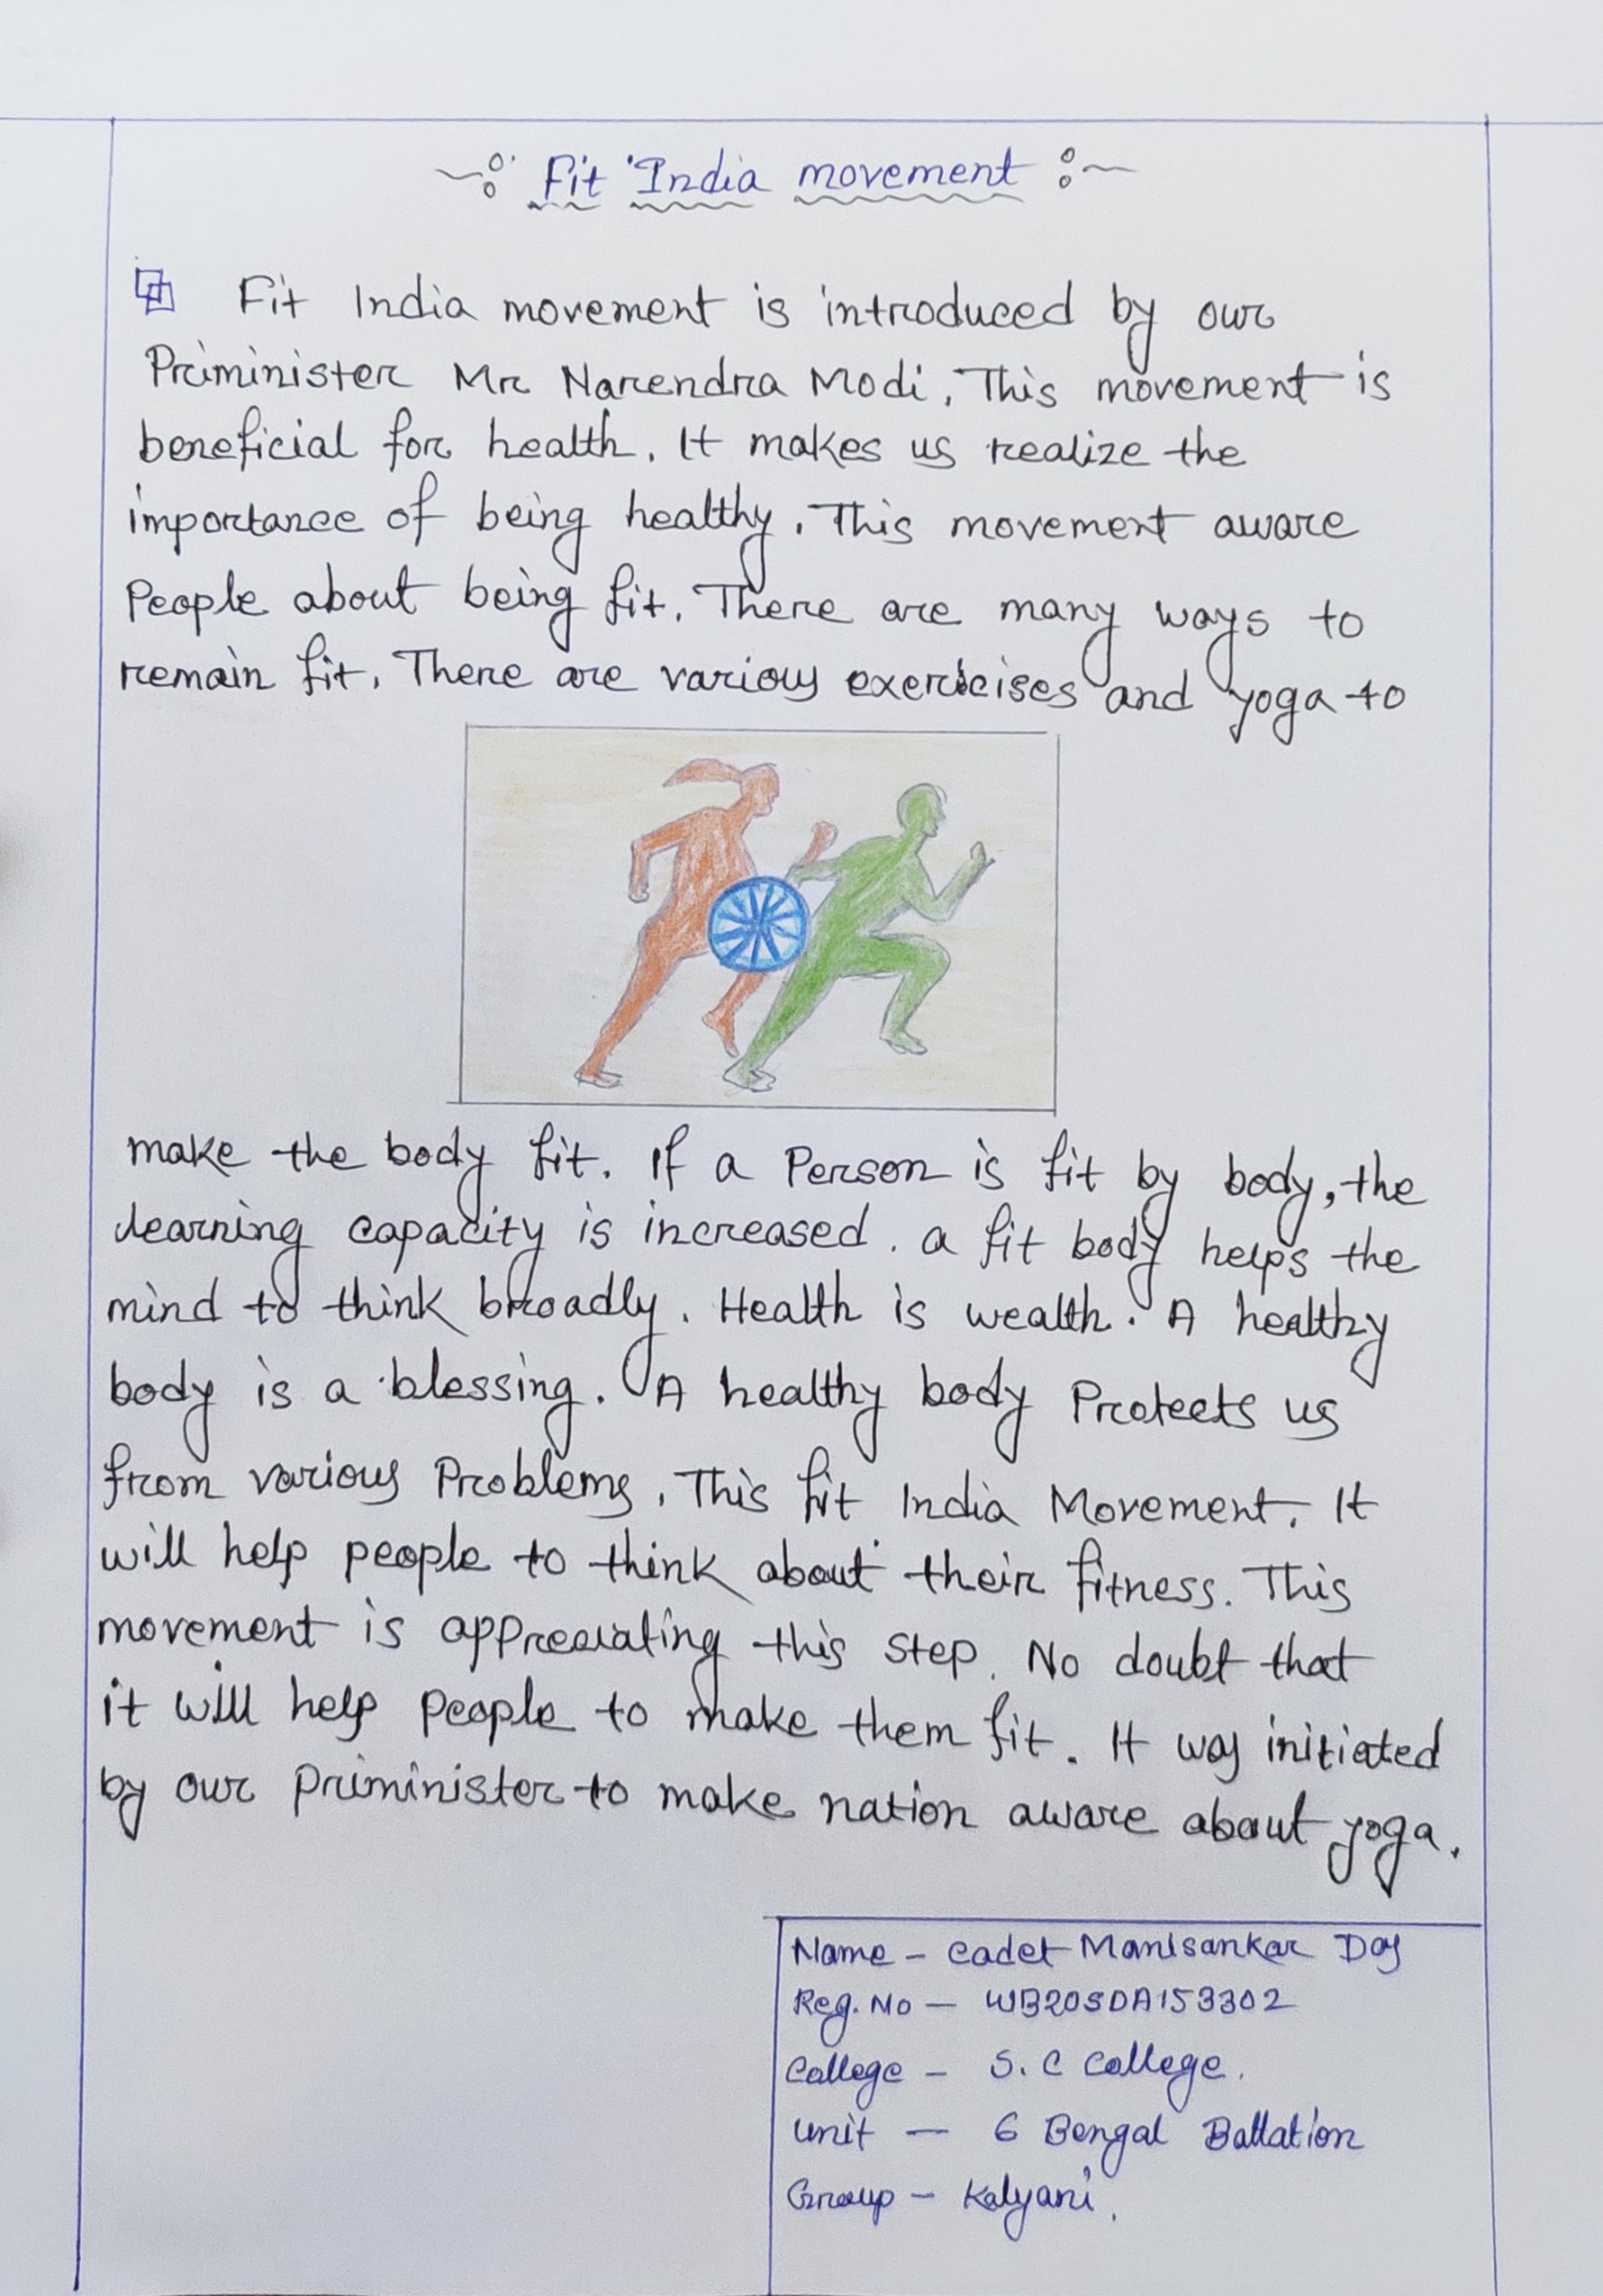 Fit India movement
Fit India movement is introduced by our
Priminister Mr Narendra Modi. This movement is
beneficial for health. It makes us realize the
importance of being healthy. This movement aware
People about being fit. There are many ways to
remain fit. There are various exercises and yoga to
make the body fit. If a Person is fit by body, the
learning capacity is increased. a fit body helps the
mind to think broadly. Health is wealth. A healthy
body is a blessing. A healthy body Protects us
from various Problems. This fit India Movement. It
will help people to think about their fitness. This
movement is appreciating this step. No doubt that
it will help People to make them fit. It was initiated
by our Priminister to make nation aware about yoga.
Name - Cadet Manisankar Das
Reg. No - WB20SDA153302
College - S. C College.
Unit - 6 Bengal Battation
Group - Kalyani.